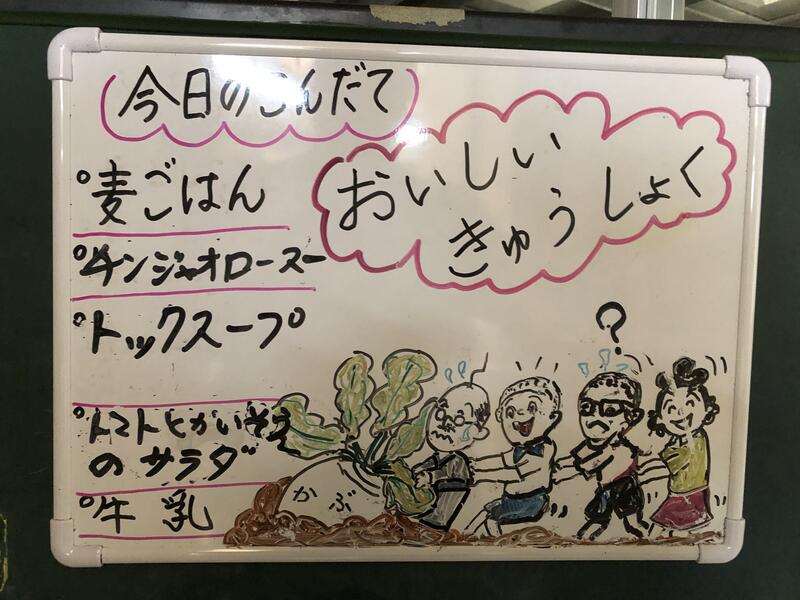 今日のこんだて
おいしい
きゅうしょく
麦ごはん
チンジャオロースー
トックスープ
トマトとかいそう
のサラダ
牛乳
?
かぶ